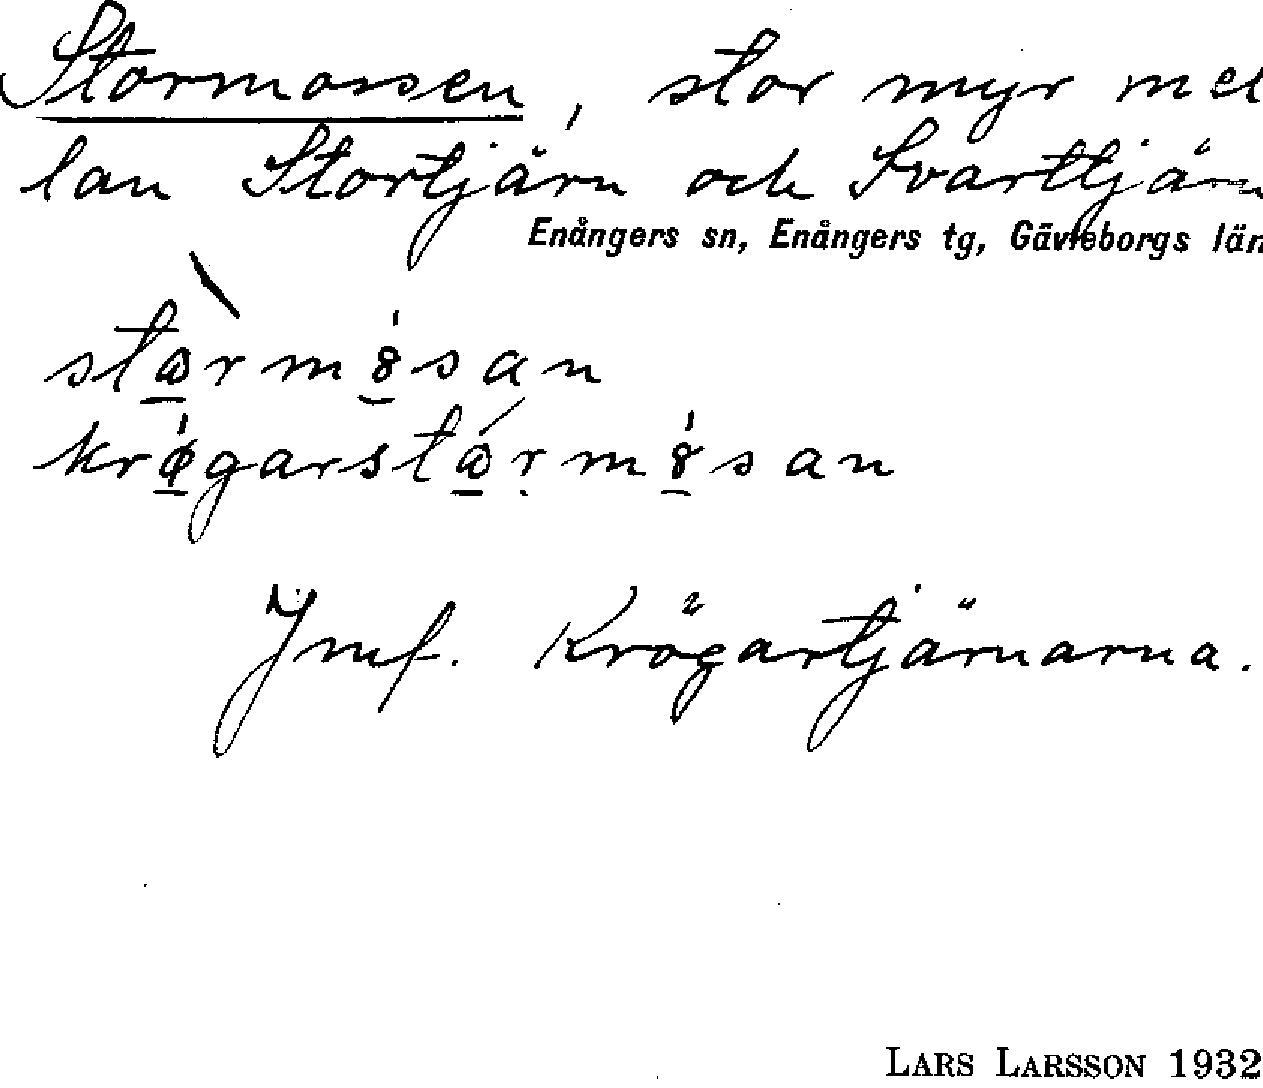 Stormossen, stor myr mel
lan Stortjärn och Svarttjärn
Enångers sn, Enångers tg, Gävleborgs län
Jmf. Krögartjärnarna.
LARS LARSSON 1932